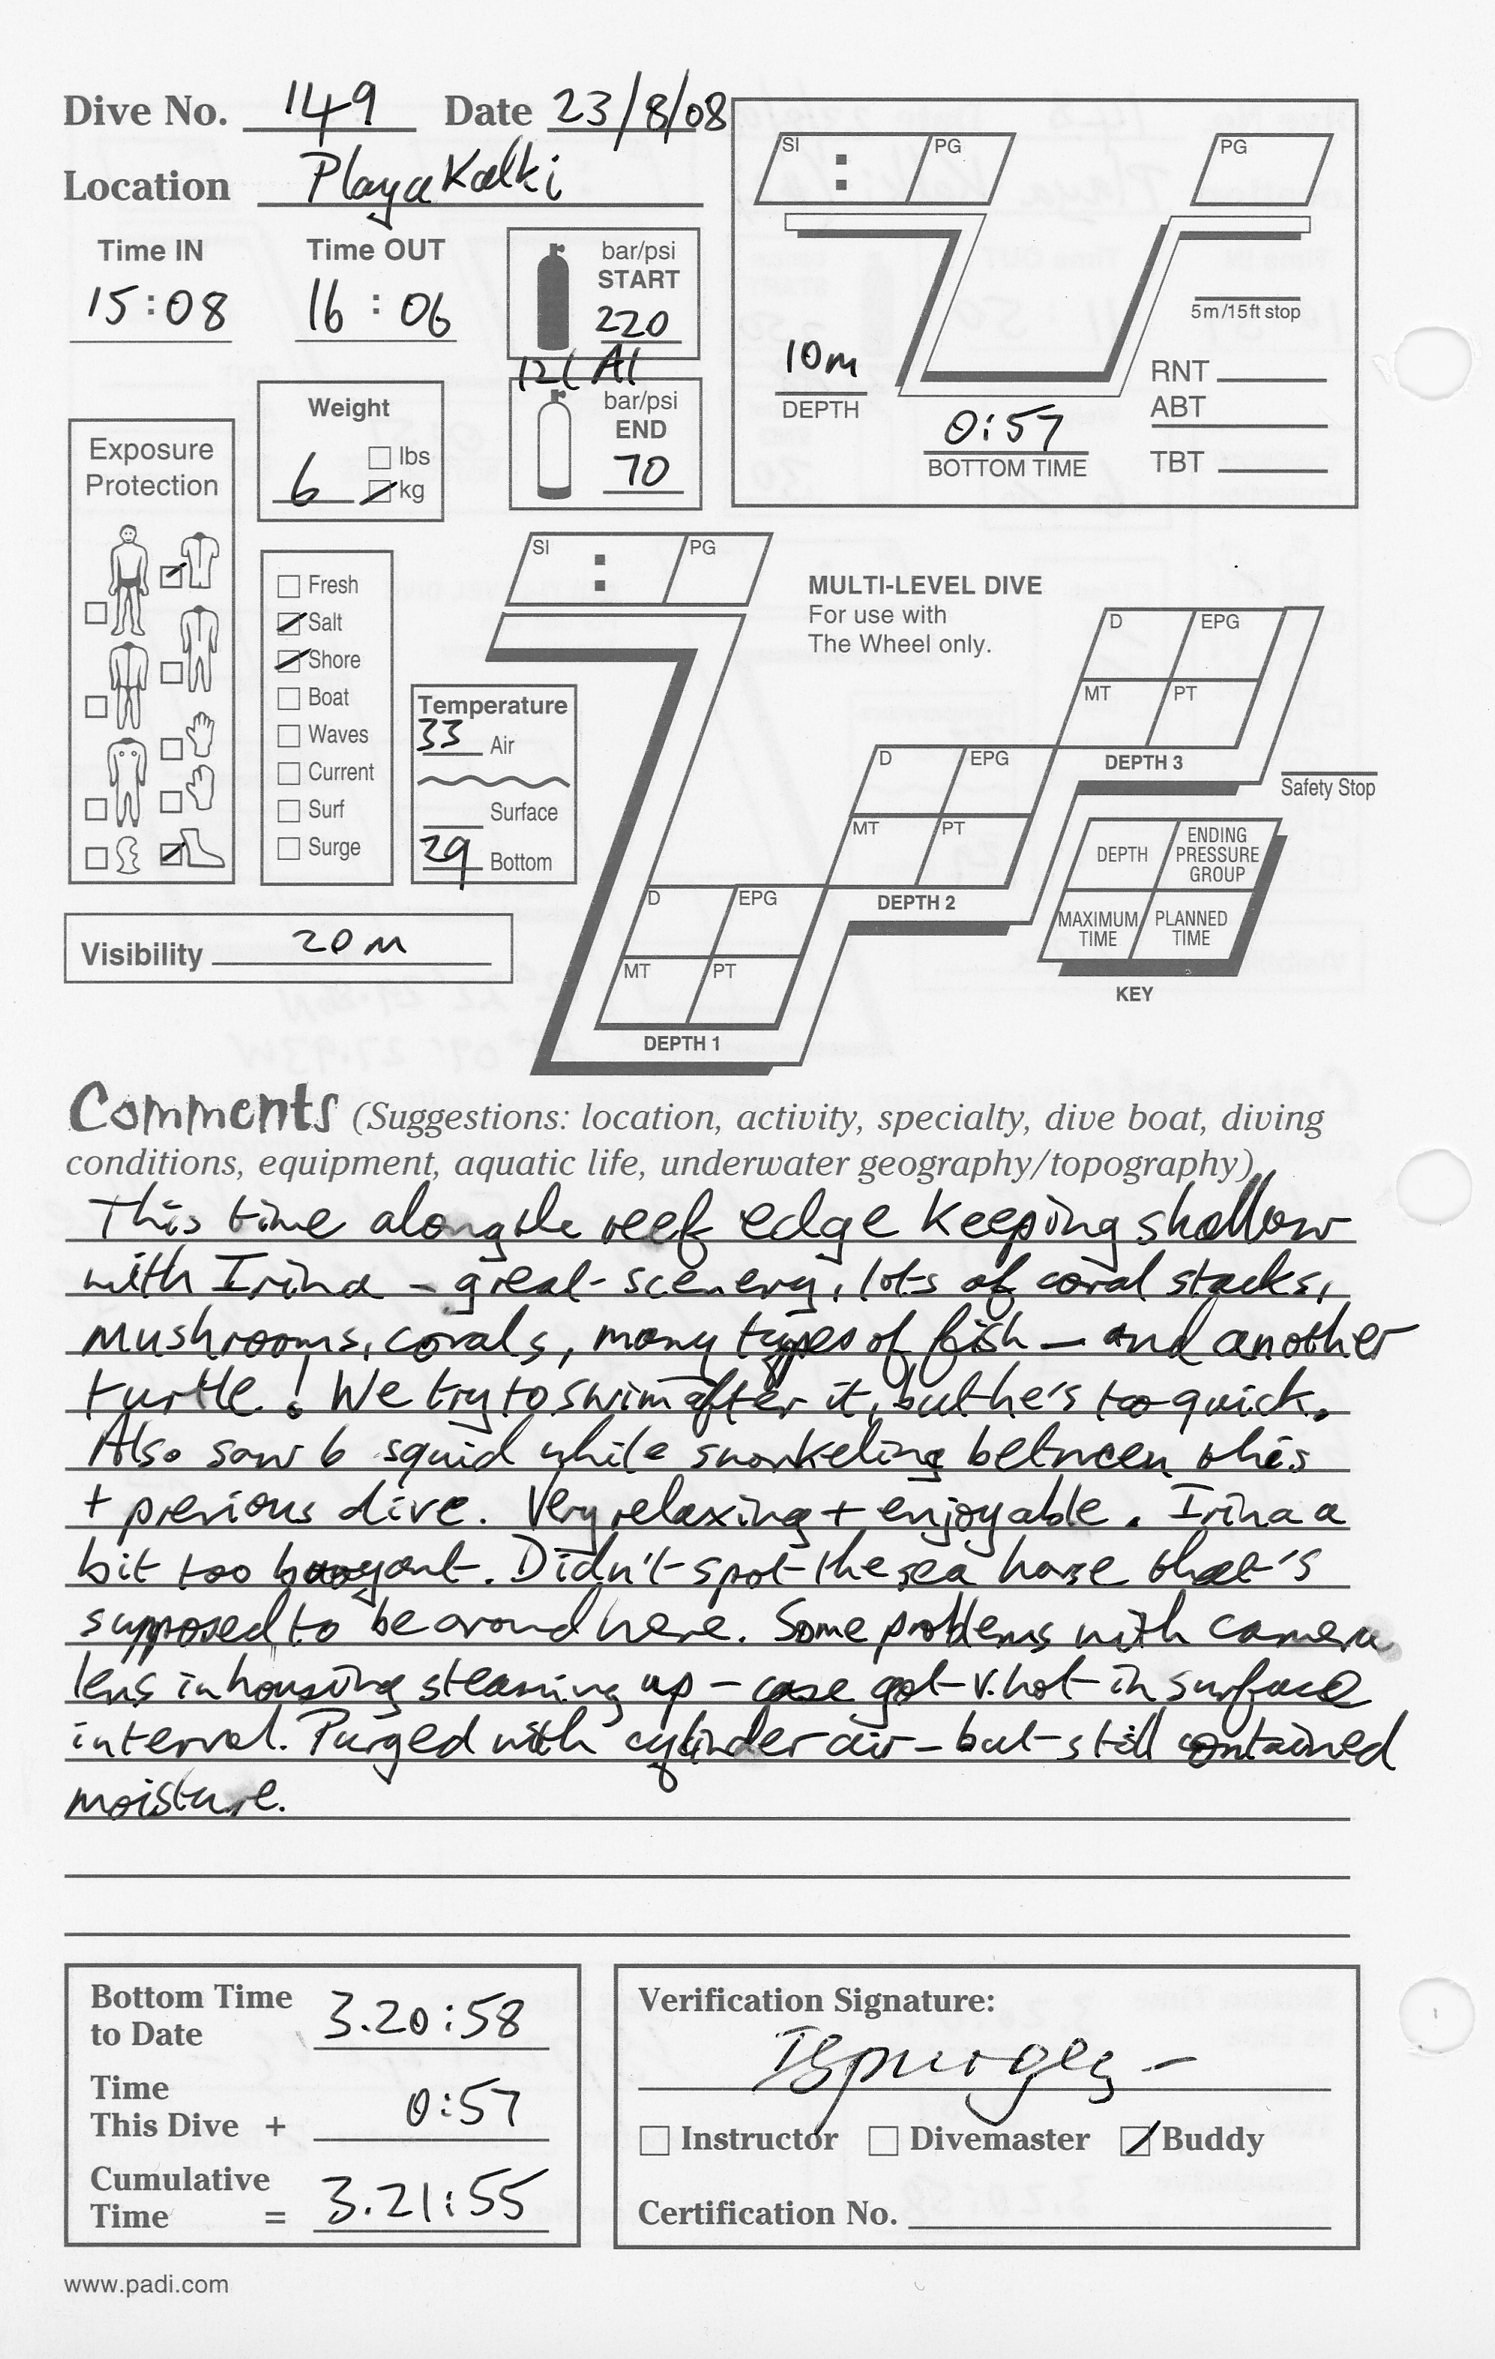 Dive No. 149 Date 23/8/08
Location Playa Kalki
Time IN Time OUT
15:08 16:06
bar/psi
START
220
12l Al
bar/psi
END
70
Weight
6 lbs
kg
Exposure
Protection
Fresh
Salt
Shore
Boat
Waves
Current
Surf
Surge
Temperature
33 Air
Surface
29 Bottom
Visibility 20m
SI : PG
PG
10m
DEPTH
0:57
BOTTOM TIME
5m/15ft stop
RNT
ABT
TBT
SI : PG
MULTI-LEVEL DIVE
For use with
The Wheel only.
D EPG
MT PT
DEPTH 3
D EPG
MT PT
DEPTH 2
D EPG
MT PT
DEPTH 1
Safety Stop
DEPTH ENDING PRESSURE GROUP
MAXIMUM TIME PLANNED TIME
KEY
Comments (Suggestions: location, activity, specialty, dive boat, diving
conditions, equipment, aquatic life, underwater geography/topography)
This time along the reef edge keeping shallow
with Irina - great scenery, lots of coral stacks,
mushrooms, corals, many types of fish - and another
turtle! We try to swim after it, but he's too quick.
Also saw 6 squid while snorkeling between this
+ previous dive. Very relaxing + enjoyable. Irina a
bit too buoyant. Didn't spot the sea horse that's
supposed to be around here. Some problems with camera
lens in housing steaming up - case got v. hot in surface
interval. Purged with cylinder air - but still contained
moisture.
Bottom Time
to Date 3.20:58
Time
This Dive + 0:57
Cumulative
Time = 3.21:55
Verification Signature:
Instructor Divemaster Buddy
Certification No.
www.padi.com